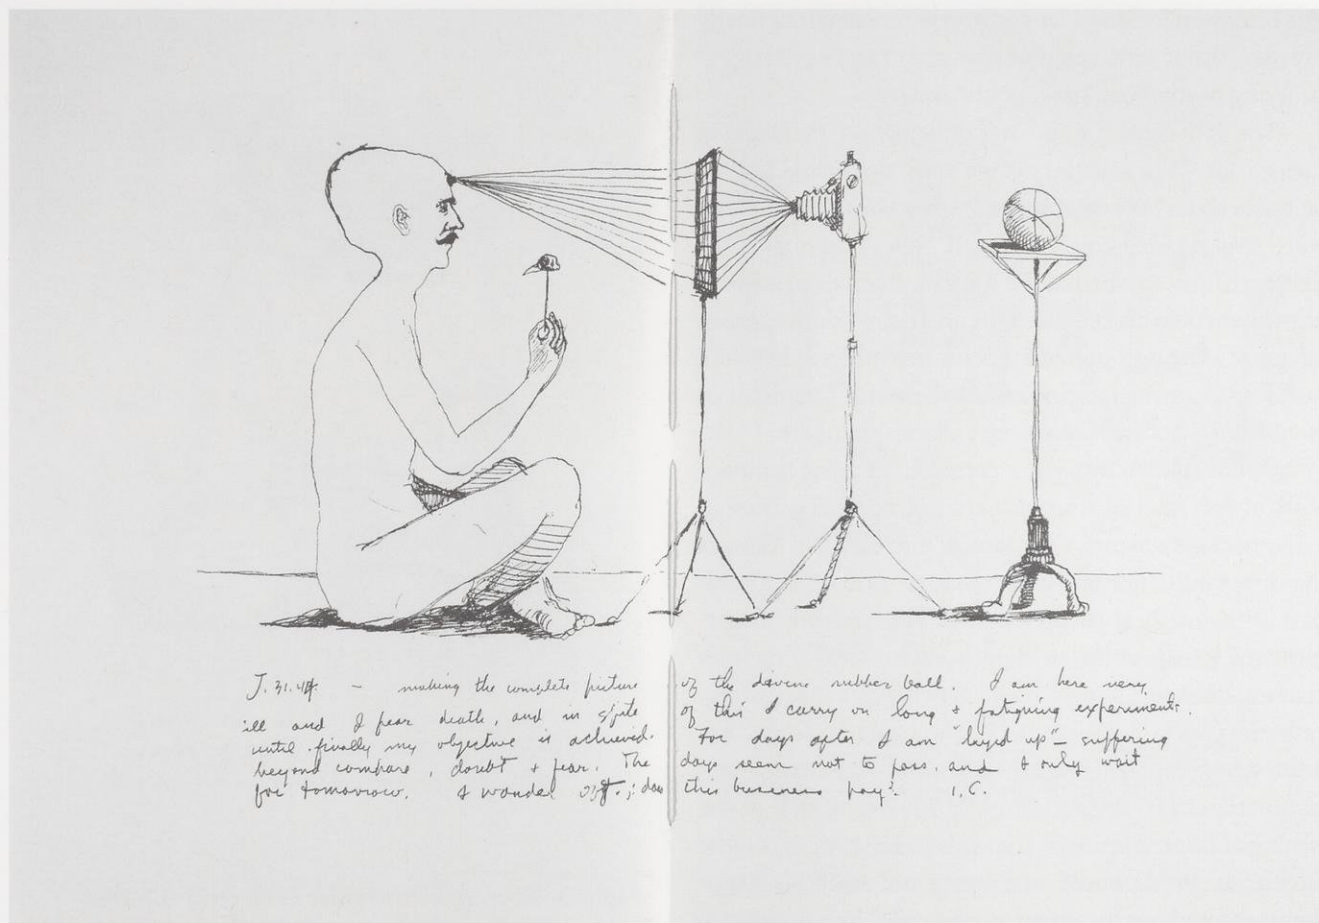 J. 31. 44. – making the complete picture of the divine rubber ball. I am here very
ill and I fear death, and in spite of this I carry on long & fatiguing experiments.
until finally my objective is achieved. For days after I am "layed up" – suffering
beyond compare, doubt & fear. The days seem not to pass. and I only wait
for tomorrow. I wonder does this business pay? I.C.